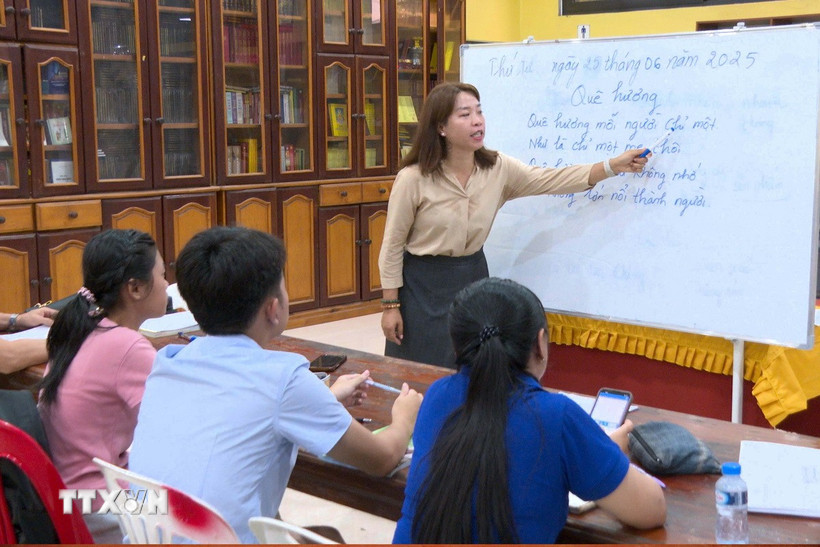 Thứ ngày 22 tháng 06 năm 2025
Quê hương
Quê hương mỗi người chỉ một
Như là chỉ một mẹ thôi
Quê không nhớ
lớn nổi thành người.
TTXVN